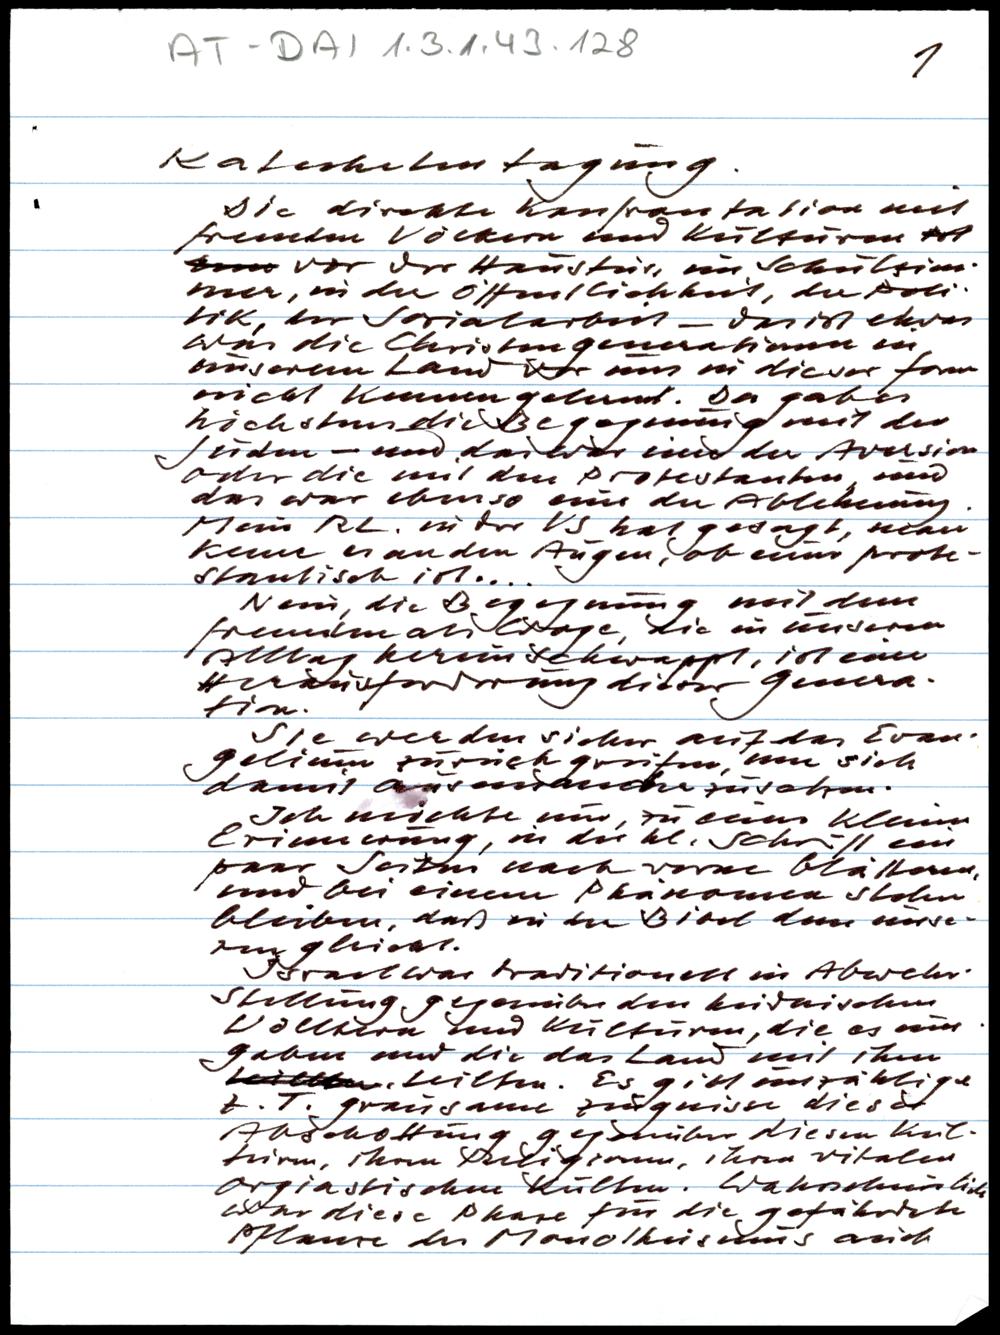 AT-DAI 1.3.1.43.128
1
Katechetentagung.
Die direkte Konfrontation mit
fremden Völkern und Kulturen ist
vor der Haustür, im Schulzim-
mer, in der Öffentlichkeit, der Poli-
tik, der Sozialarbeit – das ist etwas
was die Christengenerationen in
unserem Land vor uns in dieser Form
nicht kennengelernt. Da gab es
höchstens die Begegnung mit den
Juden – und das war eine der Aversion
oder die mit den Protestanten, und
das war ebenso eine der Ablehnung.
Mein RL. in der VS hat gesagt, man
kenne es an den Augen, ob einer prote-
stantisch ist....
Nein, die Begegnung mit dem
Fremden als Woge, die in unseren
Alltag hereinschwappt, ist eine
Herausforderung dieser Genera-
tion.
Sie werden sicher auf das Evan-
gelium zurückgreifen, um sich
damit auseinanderzusetzen.
Ich möchte nur, zu einer kleinen
Erinnerung, in der hl. Schrift ein
paar Seiten nach vorne blättern,
und bei einem Phänomen stehen
bleiben, daß in der Bibel dem unse-
ren gleicht.
Israel war traditionell in Abwehr-
stellung gegenüber den heidnischen
Völkern und Kulturen, die es um-
gaben und die das Land mit ihm
teilten. Es gibt unzählige
z. T. grausame Zeugnisse dieser
Abschottung gegenüber diesen Kul-
turen, ihren Religionen, ihren vitalen
orgiastischen Kulten. Wahrscheinlich
war diese Phase für die gefährdete
Pflanze des Monotheismus auch